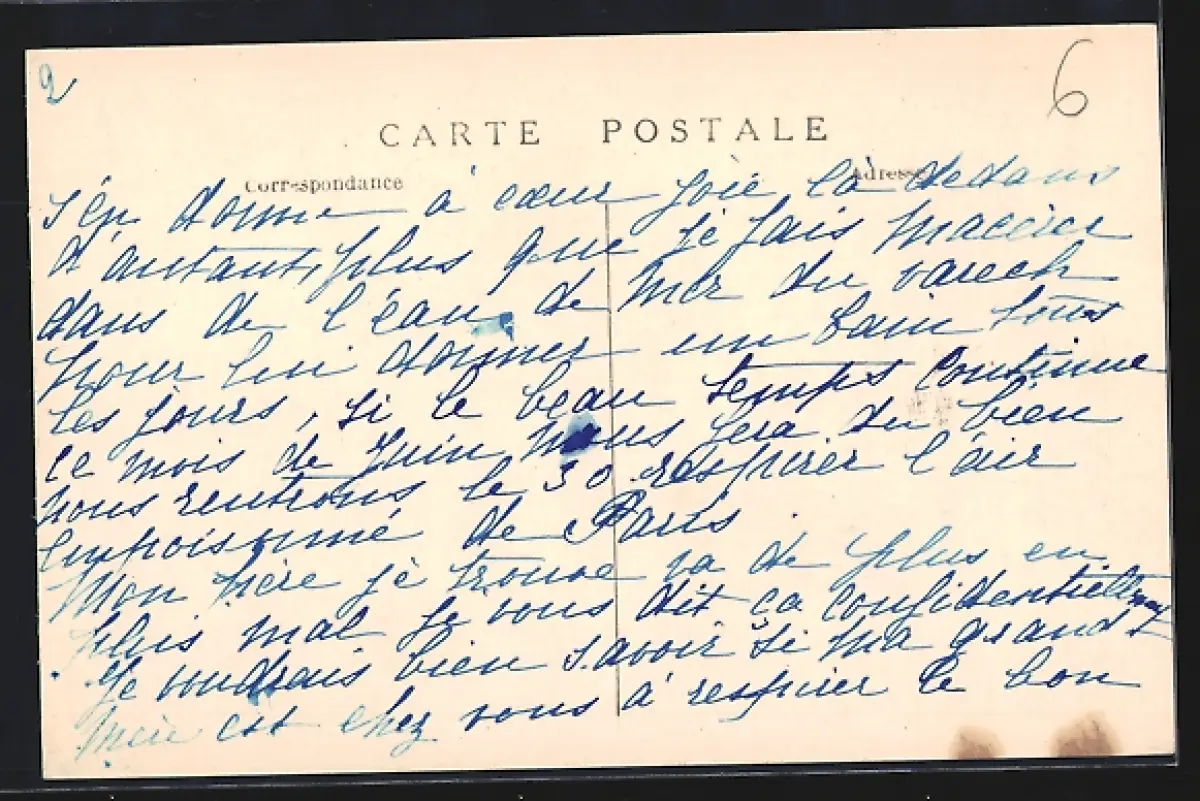 2
6
CARTE POSTALE
Correspondance
Adresse
s'en donne à cœur joie là dedans
d'autant, plus que je fais macérer
dans de l'eau de mer du varech
pour lui donner un bain tous
les jours, si le beau temps continue
ce mois de Juin nous fera du bien
nous rentrons le 30 respirer l'air
empoisonné de Paris.
Mon père je trouve va de plus en
plus mal je vous dit ça confidentiellement
Je voudrais bien savoir si ma grand
mère est chez vous à respirer le bon